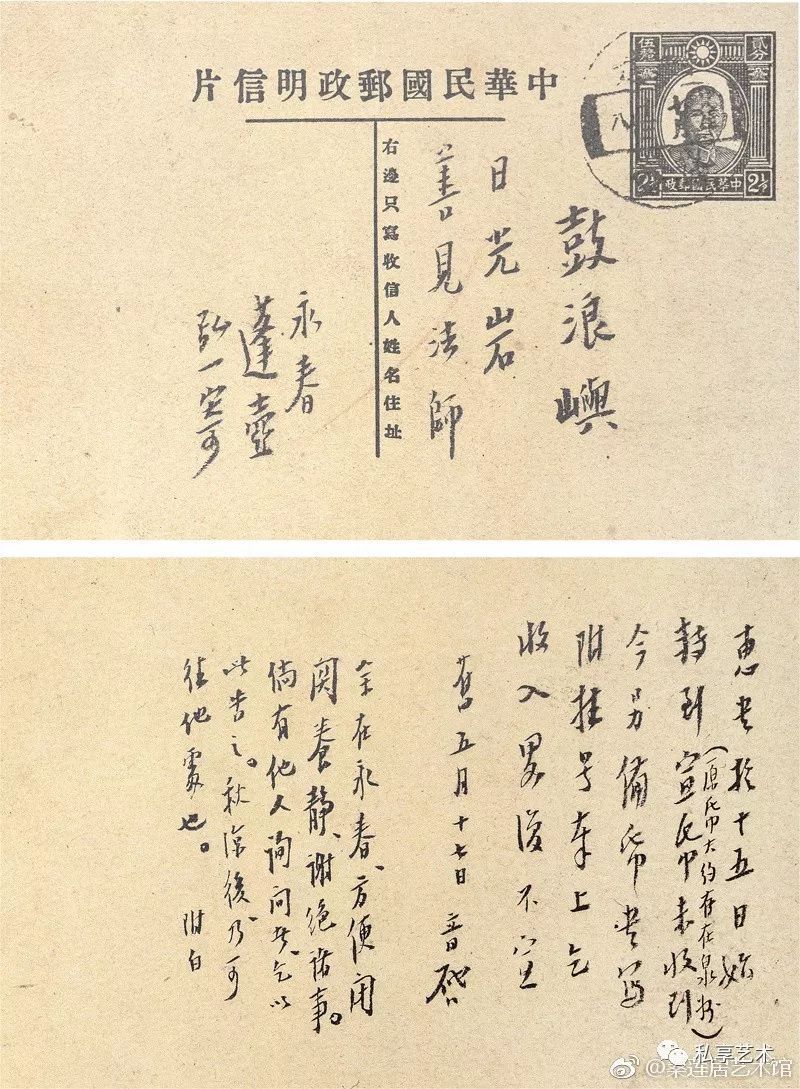 中華民國郵政明信片
貳分
伍釐
2½
2½
中華民國郵政
八
鼓浪嶼
日光岩
善見法師
右邊只寫收信人姓名住址
永春
蓬壺
弘一寄
惠書於十五日始
轉到宣帋未收到
(原帋大約存在泉州)
今另備帋書寫
附挂号奉上乞
收入畧復不宣
舊五月十七日 音啓
余在永春、方便閉
関養靜、謝絕諸事。
倘有他人詢問者、乞以
此告之。秋涼後、乃可
往他處也。 附白
私享艺术
@秦莲居艺术馆